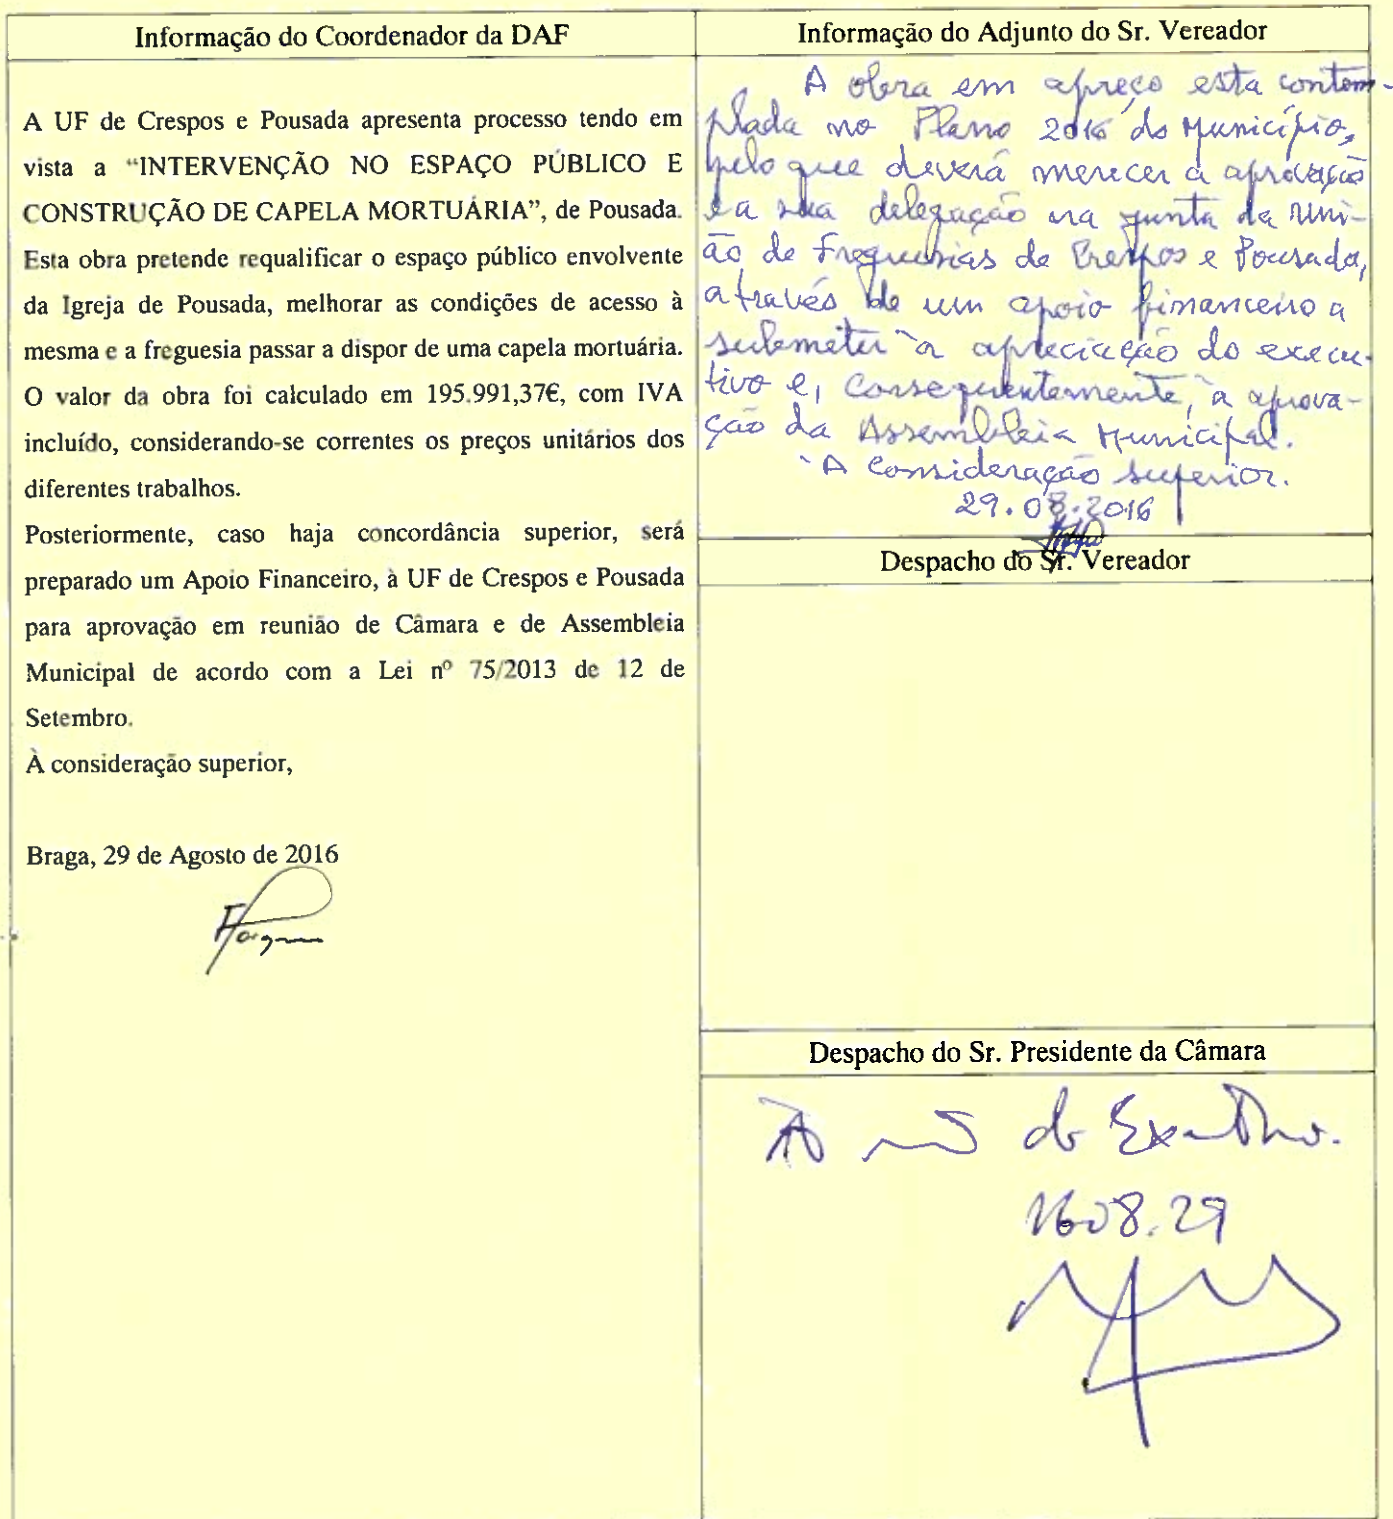 Informação do Coordenador da DAF
A UF de Crespos e Pousada apresenta processo tendo em
vista a “INTERVENÇÃO NO ESPAÇO PÚBLICO E
CONSTRUÇÃO DE CAPELA MORTUÁRIA”, de Pousada.
Esta obra pretende requalificar o espaço público envolvente
da Igreja de Pousada, melhorar as condições de acesso à
mesma e a freguesia passar a dispor de uma capela mortuária.
O valor da obra foi calculado em 195.991,37€, com IVA
incluído, considerando-se correntes os preços unitários dos
diferentes trabalhos.
Posteriormente, caso haja concordância superior, será
preparado um Apoio Financeiro, à UF de Crespos e Pousada
para aprovação em reunião de Câmara e de Assembleia
Municipal de acordo com a Lei nº 75/2013 de 12 de
Setembro.
À consideração superior,
Braga, 29 de Agosto de 2016
Informação do Adjunto do Sr. Vereador
A obra em apreço está contem-
plada no Plano 2016 do Município,
pelo que deverá merecer a aprovação
e a sua delegação na junta da Uni-
ão de Freguesias de Crespos e Pousada,
através de um apoio financeiro a
submeter à apreciação do execu-
tivo e, consequentemente, à aprova-
ção da Assembleia Municipal.
À Consideração superior.
29.08.2016
Despacho do Sr. Vereador
Despacho do Sr. Presidente da Câmara
do Executivo.
1608.29